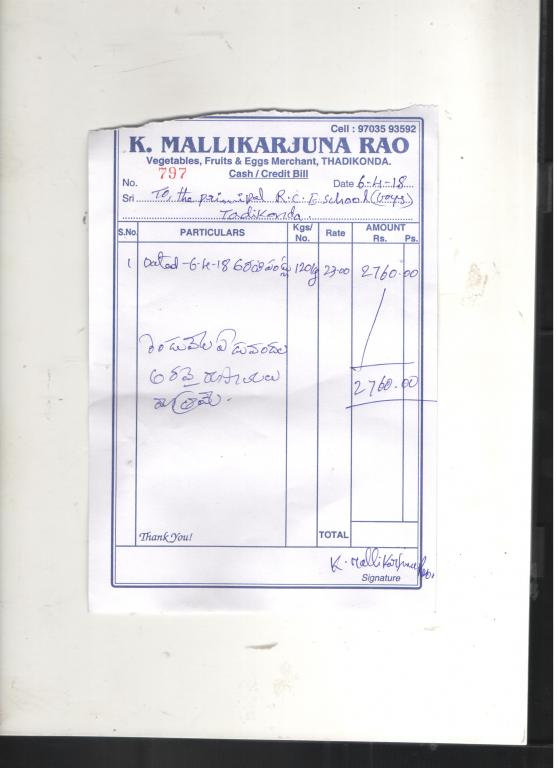 Cell : 97035 93592
K. MALLIKARJUNA RAO
Vegetables, Fruits & Eggs Merchant, THADIKONDA.
Cash / Credit Bill
No. 797 Date 6-4-18
Sri To, the principal R.C.E school (Boys)
Tadikonda.
S.No. PARTICULARS Kgs/ No. Rate AMOUNT Rs. Ps.
1 Dated -6-4-18 120kg 23.00 2760.00
రెండువేల ఏడువందల
అరవై రూపాయలు
మాత్రమే.
2760.00
Thank You! TOTAL
K. Mallikarjuna Rao.
Signature